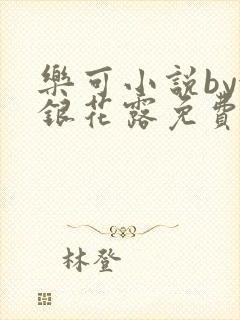 樂可小説by
銀花露免費
林登